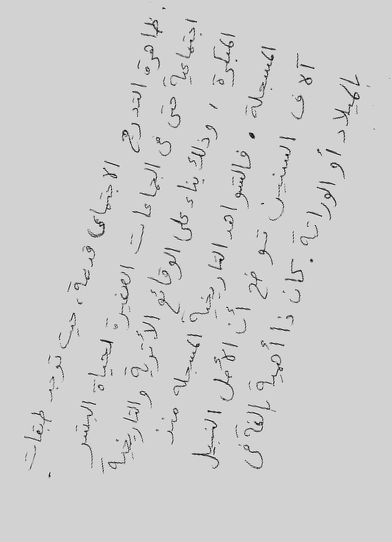 ظاهرة التدرج الاجتماعي قديمة، حيث توجد طبقات
اجتماعية حتى في الجماعات الصغيرة لحياة البشر
المبكرة، وذلك بناء على الوقائع الأثرية والتاريخية
المسجلة. فالشواهد التاريخية المسجلة منذ
آلاف السنين توضح أن الأصل النبيل
بالميلاد أو الوراثة. كان ذا أهمية بالغة في